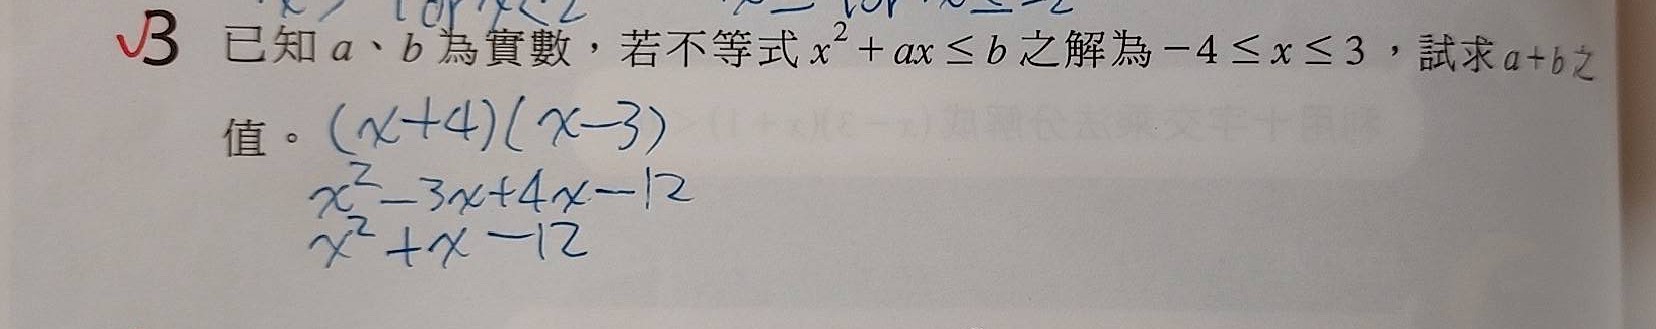 3 已知 a、b 為實數，若不等式 x² + ax ≤ b 之解為 −4 ≤ x ≤ 3，試求 a+b 之
值。(x+4)(x−3)
x²−3x+4x−12
x²+x−12